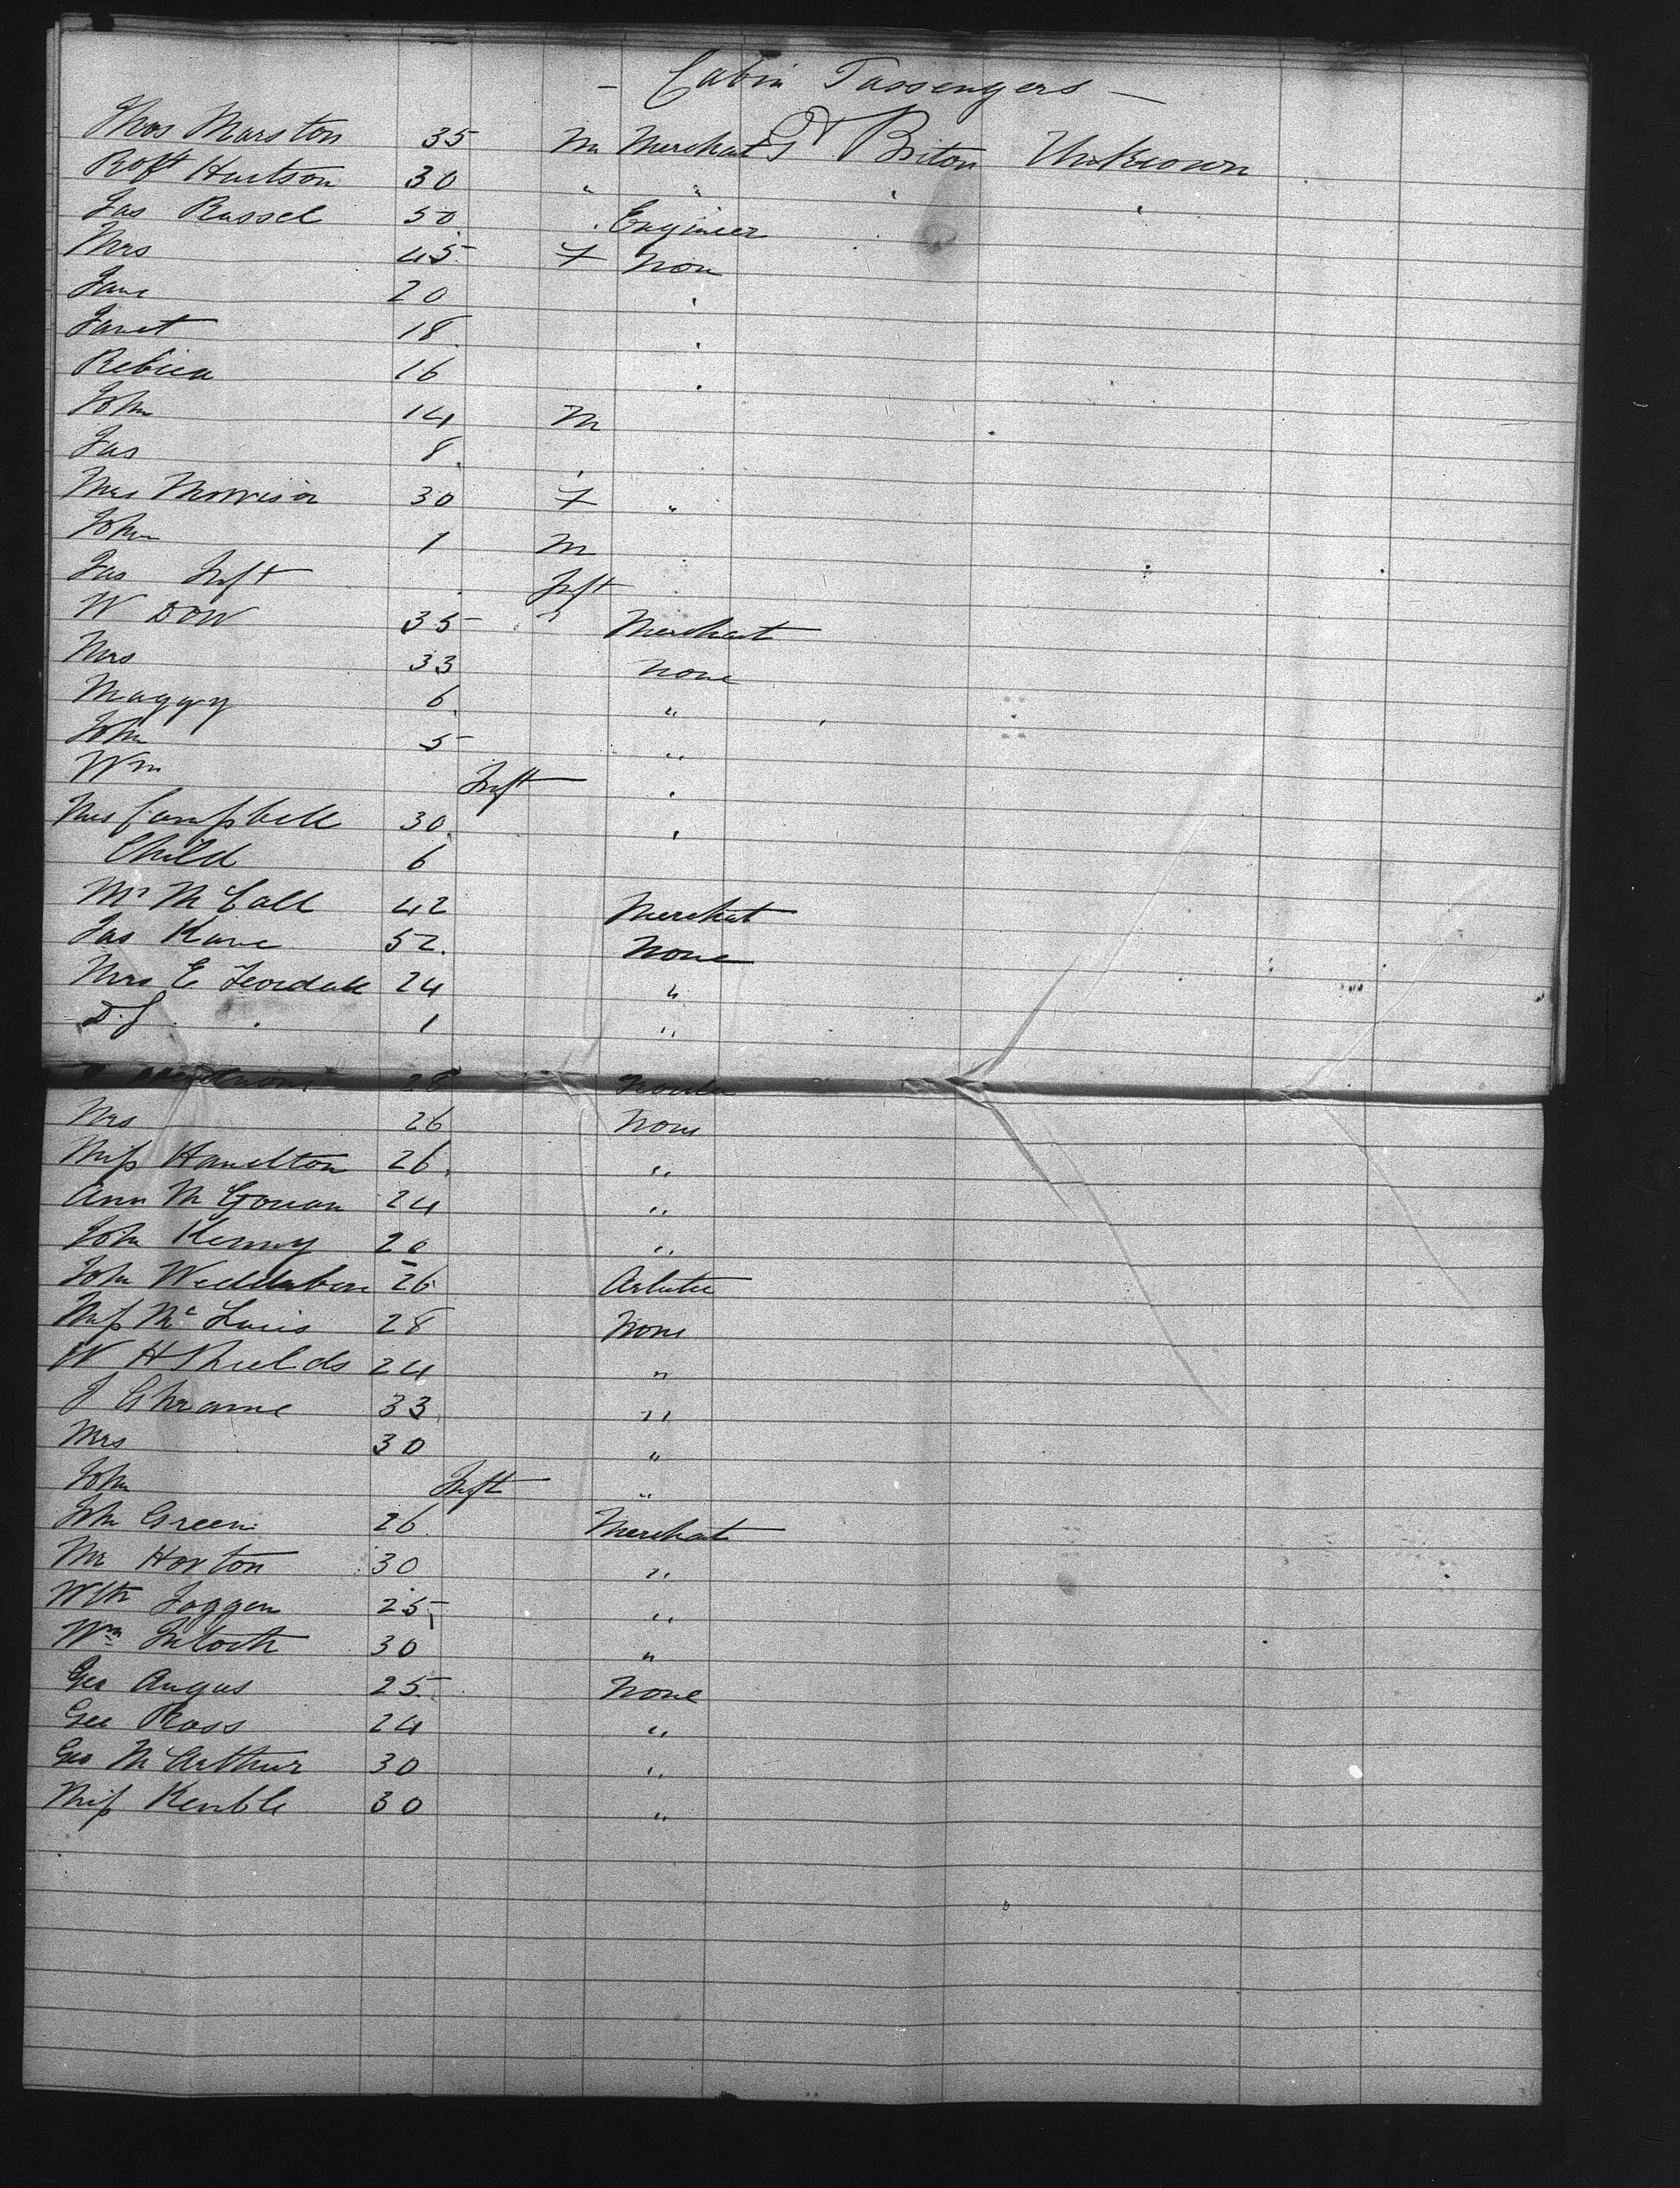 — Cabin Passengers —
Thos Marston 35 M Merchat Gt Briton Unknown
Robt Hudson 30 " " " "
Jas Russel 50 " Engineer "
Mrs 45 F Non
Jane 20 "
Janet 18 "
Rebica 16 "
John 14 M
Jas 8 "
Mrs Morrison 30 F "
John 1 M
Jas Inft Inft
W Dow 35 Merchat
Mrs 33 None
Maggy 6 "
John 5 "
Wm Inft "
Mrs Campbell 30 "
Child 6
Mr McCall 42 Merchat
Jas Kane 52 None
Mrs E 24 "
D.J. 1 "
28
Mrs 26 None
Miss Hamelton 26 "
Ann McGouan 24 "
John Kenny 20 "
John 26
Miss Mc 28 None
W H Shields 24 "
J Ahrame 33 "
Mrs 30 "
John Inft "
Jhn Green 26 Merchat
Mr Horton 30 "
25 "
Wm 30 "
Geo Angus 25 None
Geo Ross 24 "
Geo McArthur 30 "
Miss Kenble 30 "